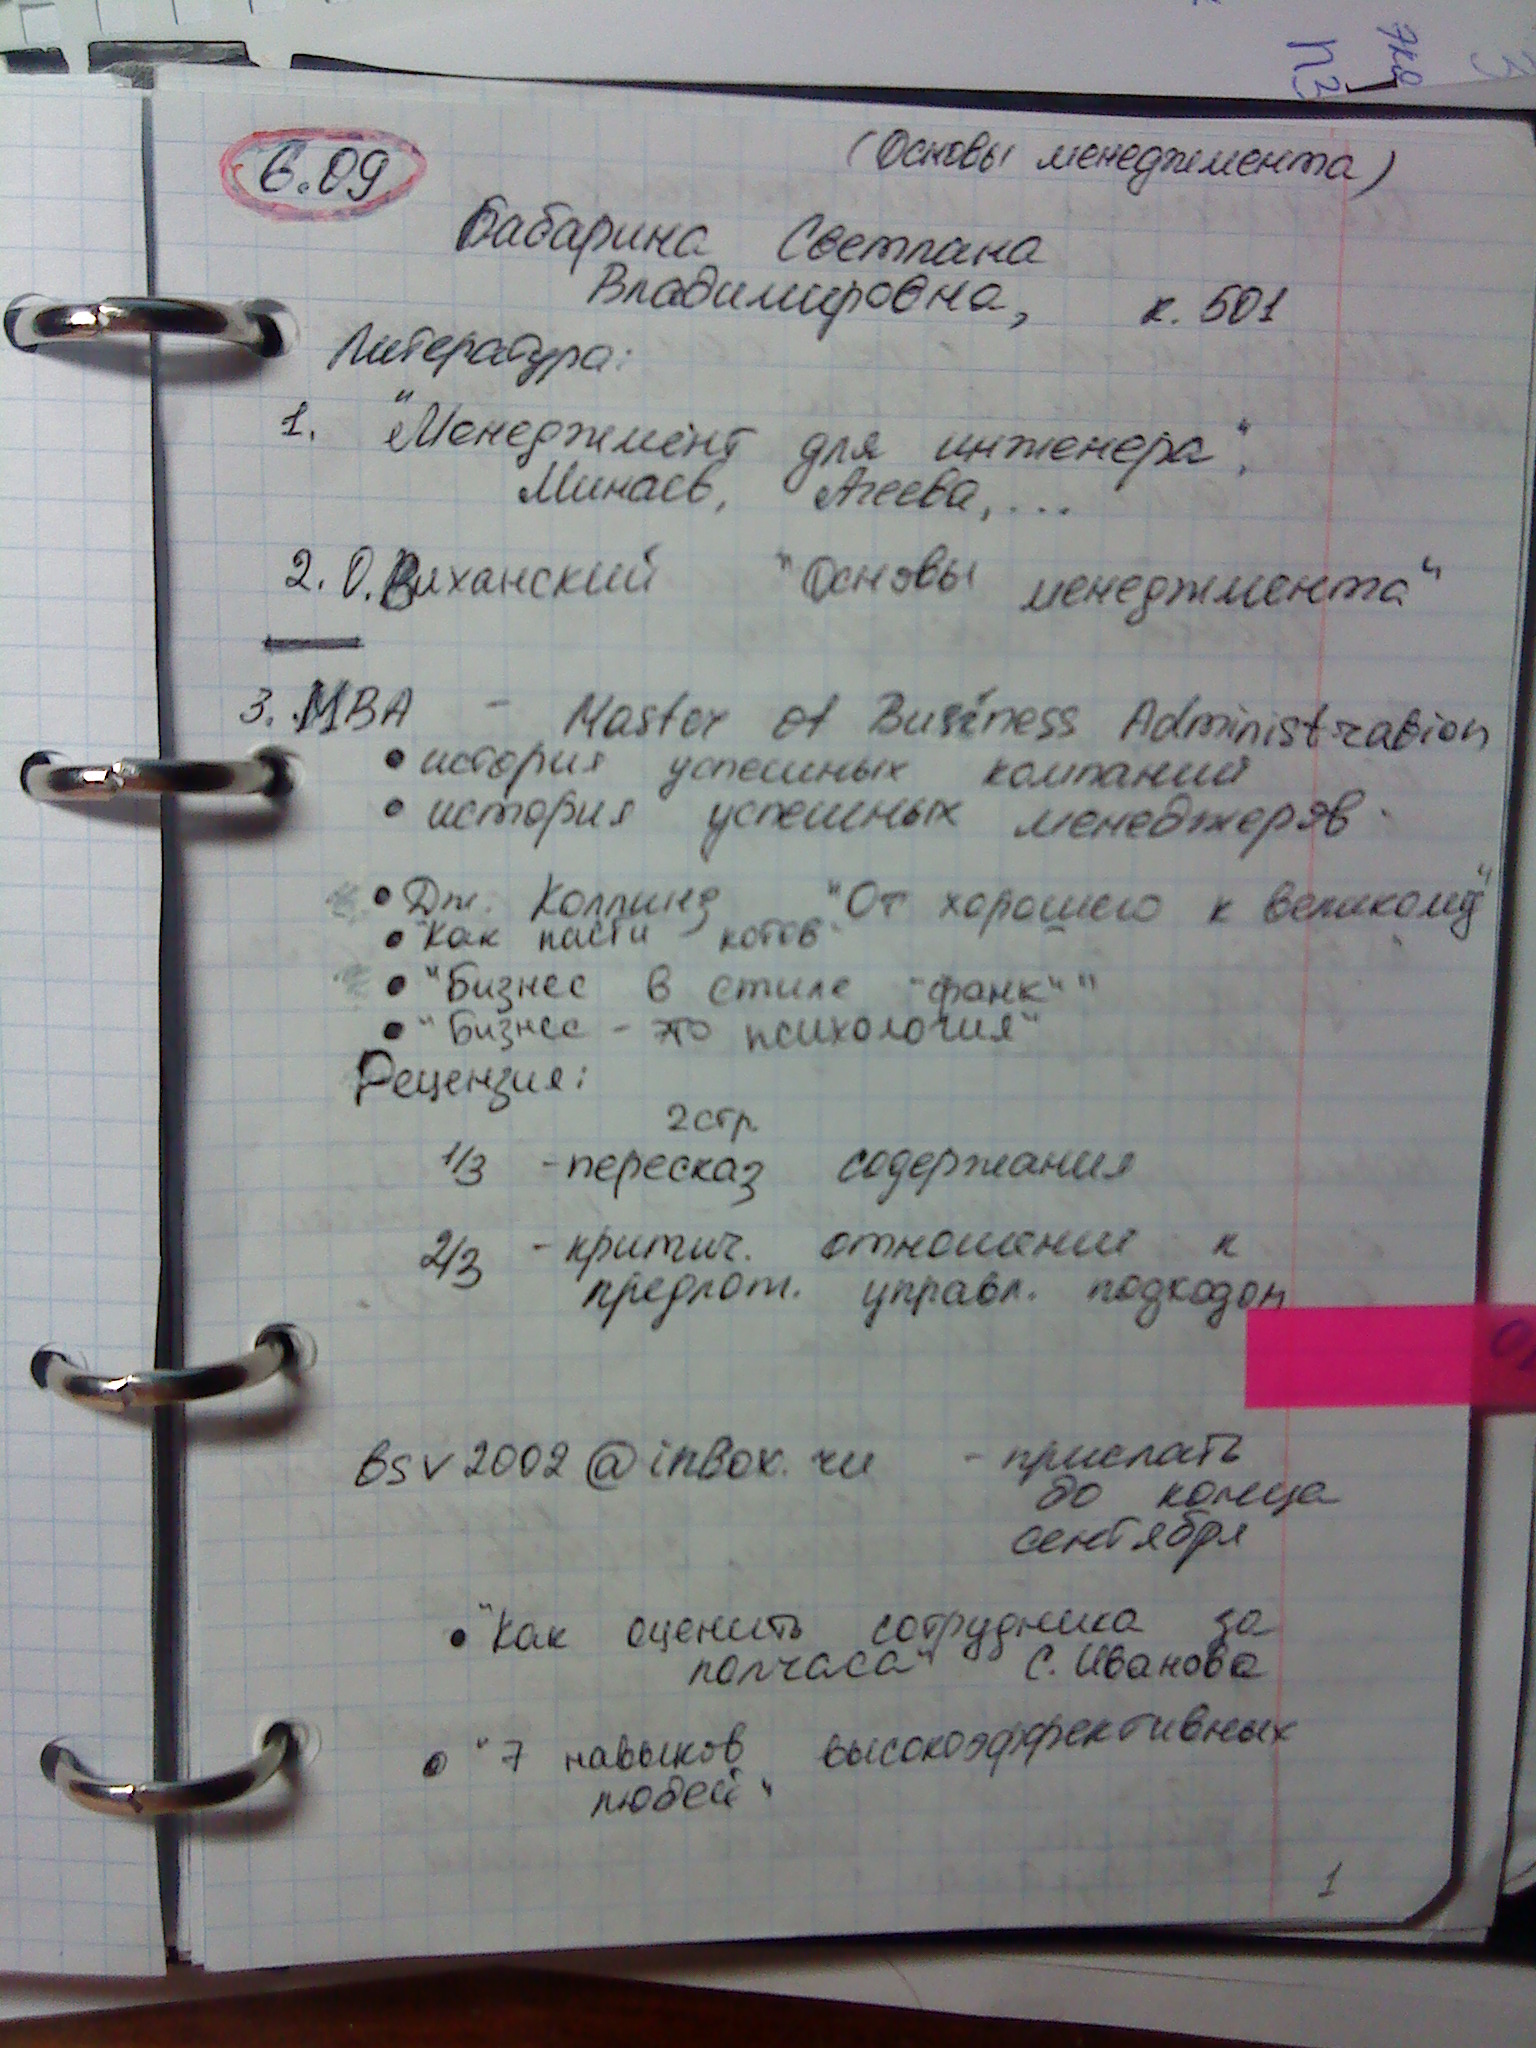 6.09
(Основы менеджмента)
Бабарина Светлана
Владимировна, к. 501
Литература:
1. "Менеджмент для инженера",
Минаев, Агеева, ...
2. О. Виханский "Основы менеджмента"
3. MBA - Master of Business Administration
• история успешных компаний
• история успешных менеджеров.
• Дж. Коллинз "От хорошего к великому"
• "Как пасти котов"
• "Бизнес в стиле "фанк""
• "Бизнес - это психология"
Рецензия:
2 стр.
1/3 - пересказ содержания
2/3 - критич. отношение к
предлож. управл. подходом
bsv2002@inbox.ru - прислать
до конца
сентября
• "Как оценить сотрудника за
полчаса" С. Иванова
• "7 навыков высокоэффективных
людей"
1